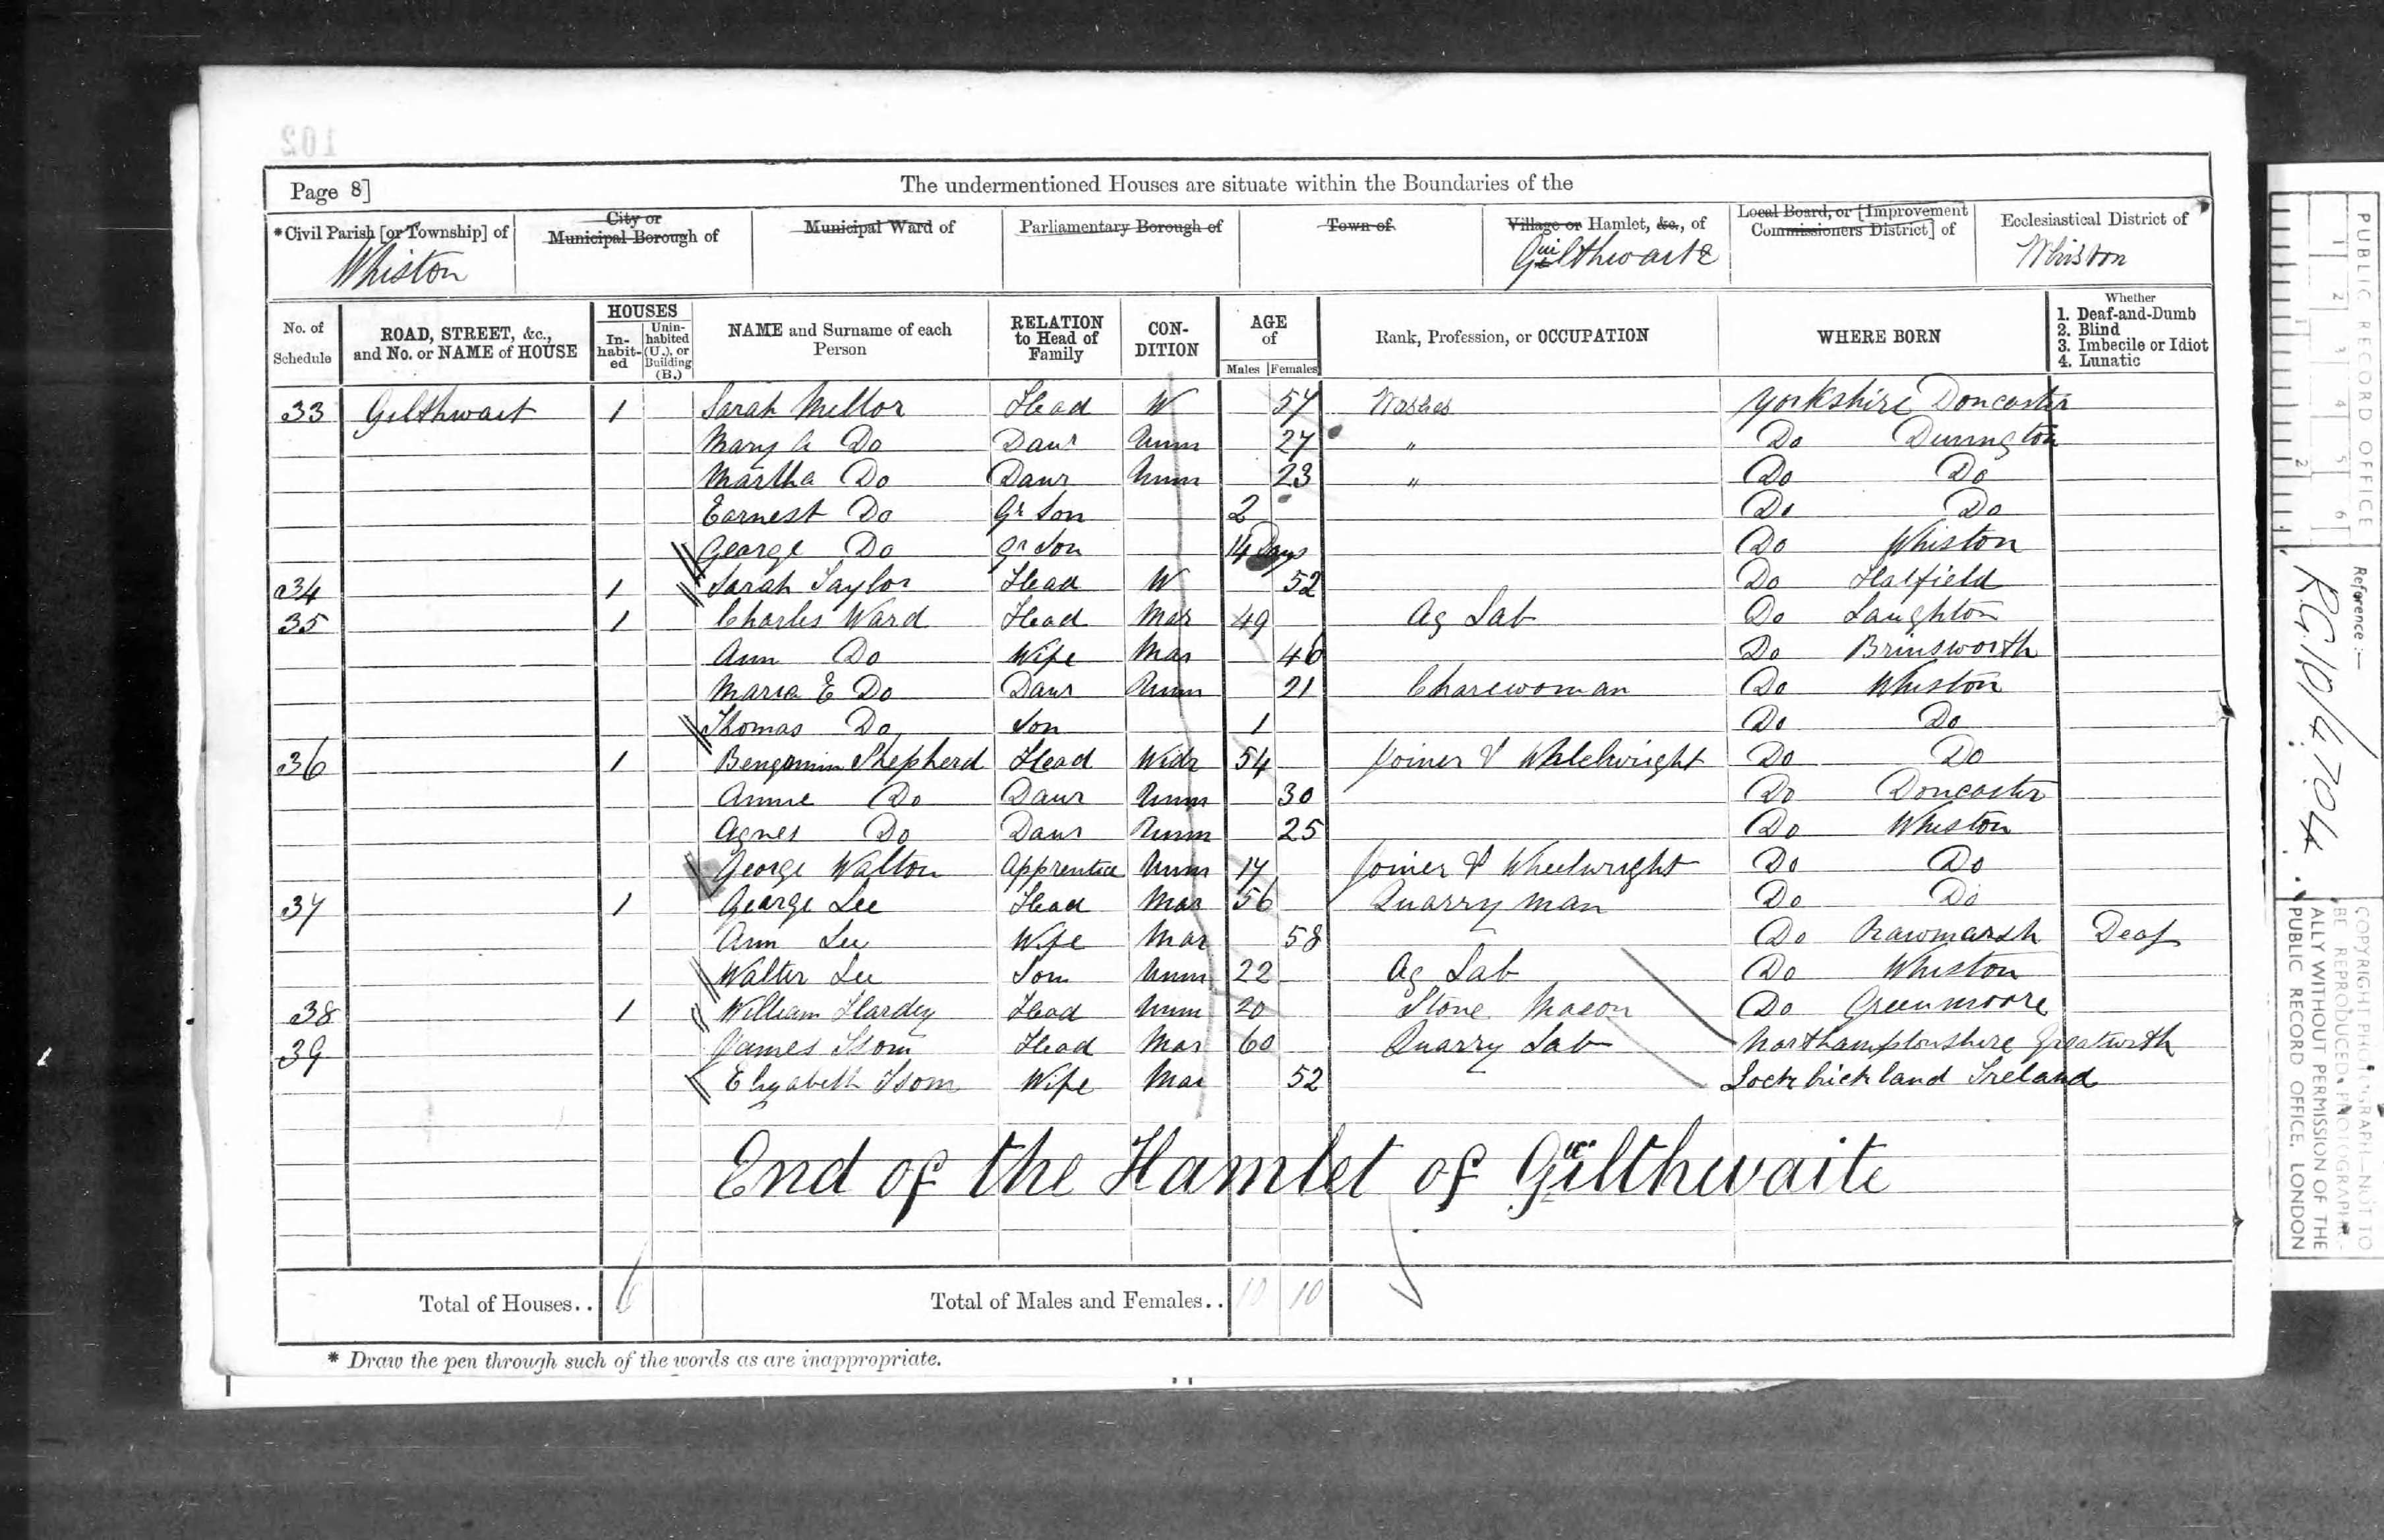 102
Page 8]
The undermentioned Houses are situate within the Boundaries of the
*Civil Parish [or Township] of
City or Municipal Borough of
Municipal Ward of
Parliamentary Borough of
Town of
Village or Hamlet, &c., of
Local Board, or [Improvement Commissioners District] of
Ecclesiastical District of
Whiston
Guilthwaite
Whiston
No. of Schedule
ROAD, STREET, &c., and No. or NAME of HOUSE
HOUSES
In-habit-ed
Unin-habited (U.), or Building (B.)
NAME and Surname of each Person
RELATION to Head of Family
CON-DITION
AGE of
Males
Females
Rank, Profession, or OCCUPATION
WHERE BORN
Whether
1. Deaf-and-Dumb
2. Blind
3. Imbecile or Idiot
4. Lunatic
33 Gilthwait 1 Sarah Mellor Head W 57 Yorkshire Doncaster
Mary A Do Daur Unm 27 " Do
Martha Do Daur Unm 23 " Do Do
Earnest Do Gr Son 2 Do Do
George Do Gr Son 14 Days Do Whiston
34 1 Sarah Taylor Head W 52 Do Hatfield
35 1 Charles Ward Head Mar 49 Ag Lab Do Laughton
Ann Do Wife Mar 46 Do Brinsworth
Maria E Do Daur Unm 21 Charewoman Do Whiston
Thomas Do Son 1 Do Do
36 1 Bengamin Shepherd Head Widr 54 Joiner & Whelewright Do Do
Annie Do Daur Unm 30 Do Doncaster
Agnes Do Daur Unm 25 Do Whiston
George Walton Apprentice Unm 17 Joiner & Wheelwright Do Do
37 1 George Lee Head Mar 56 Quarry man Do Do
Ann Lee Wife Mar 58 Do Rawmarsh Deaf
Walter Lee Son Unm 22 Ag Lab Do Whiston
38 1 William Hardey Head Unm 20 Stone Mason Do Greenmoore
39 James Isom Head Mar 60 Quarry Lab Northamptonshire Greatworth
Elizabeth Isom Wife Mar 52 Ireland
End of the Hamlet of Guilthwaite
Total of Houses.. 6
Total of Males and Females.. 10 10
* Draw the pen through such of the words as are inappropriate.
PUBLIC RECORD OFFICE
1 2 3 4 5 6
1 2
Reference:—
R.G. 10/4704
COPYRIGHT PHOTOGRAPH—NOT TO BE REPRODUCED PHOTOGRAPHIC-ALLY WITHOUT PERMISSION OF THE PUBLIC RECORD OFFICE, LONDON